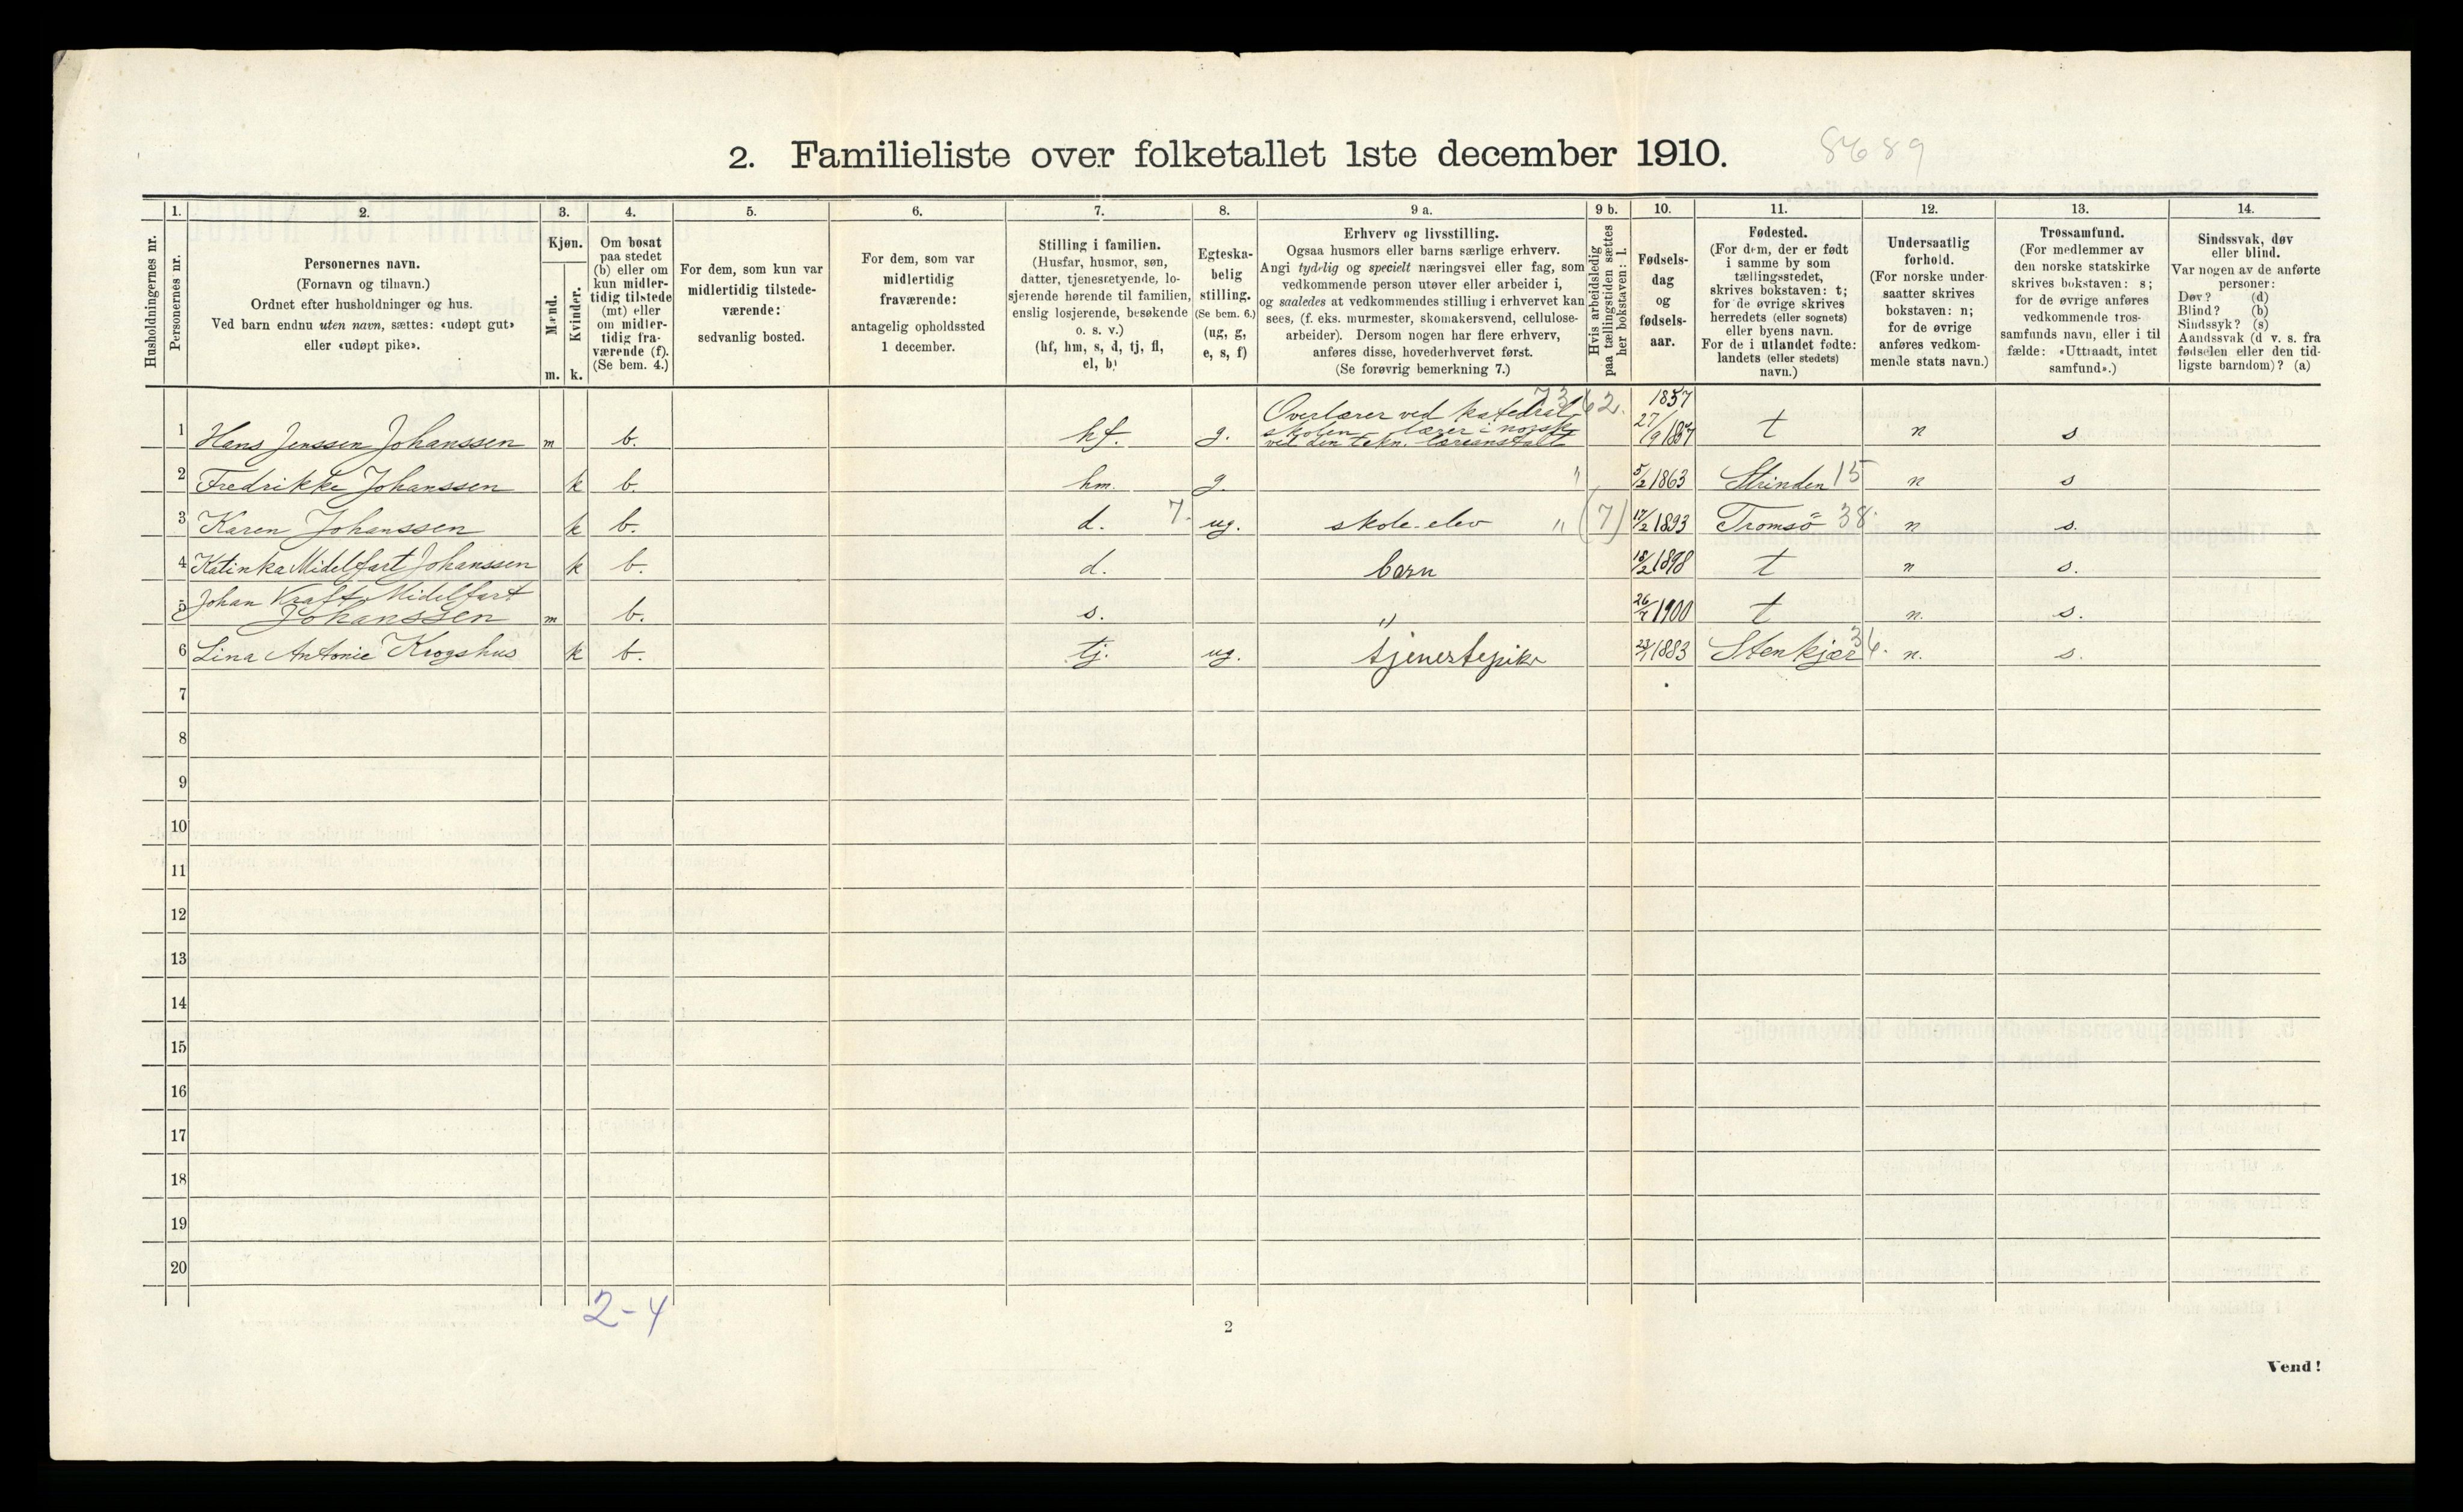 2. Familieliste over folketallet 1ste december 1910.
8689
Husholdningernes nr.
1.
Personernes nr.
2.
Personernes navn.
(Fornavn og tilnavn.)
Ordnet efter husholdninger og hus.
Ved barn endnu uten navn, sættes: «udøpt gut»
eller «udøpt pike».
3.
Kjøn.
Mænd.
Kvinder.
m. k.
4.
Om bosat
paa stedet
(b) eller om
kun midler-
tidig tilstede
(mt) eller
om midler-
tidig fra-
værende (f).
(Se bem. 4.)
5.
For dem, som kun var
midlertidig tilstede-
værende:
sedvanlig bosted.
6.
For dem, som var
midlertidig
fraværende:
antagelig opholdssted
1 december.
7.
Stilling i familien.
(Husfar, husmor, søn,
datter, tjenestetyende, lo-
sjerende hørende til familien,
enslig losjerende, besøkende
o. s. v.)
(hf, hm, s, d, tj, fl,
el, b)
8.
Egteska-
belig
stilling.
(Se bem. 6.)
(ug, g,
e, s, f)
9 a.
Erhverv og livsstilling.
Ogsaa husmors eller barns særlige erhverv.
Angi tydelig og specielt næringsvei eller fag, som
vedkommende person utøver eller arbeider i,
og saaledes at vedkommendes stilling i erhvervet kan
sees, (f. eks. murmester, skomakersvend, cellulose-
arbeider). Dersom nogen har flere erhverv,
anføres disse, hovederhvervet først.
(Se forøvrig bemerkning 7.)
9 b.
Hvis arbeidsledig
paa tællingstiden sættes
her bokstaven: l.
10.
Fødsels-
dag
og
fødsels-
aar.
11.
Fødested.
(For dem, der er født
i samme by som
tællingsstedet,
skrives bokstaven: t;
for de øvrige skrives
herredets (eller sognets)
eller byens navn.
For de i utlandet fødte:
landets (eller stedets)
navn.)
12.
Undersaatlig
forhold.
(For norske under-
saatter skrives
bokstaven: n;
for de øvrige
anføres vedkom-
mende stats navn.)
13.
Trossamfund.
(For medlemmer av
den norske statskirke
skrives bokstaven: s;
for de øvrige anføres
vedkommende tros-
samfunds navn, eller i til
fælde: «Uttraadt, intet
samfund».)
14.
Sindssvak, døv
eller blind.
Var nogen av de anførte
personer:
Døv? (d)
Blind? (b)
Sindssyk? (s)
Aandssvak (d v. s. fra
fødselen eller den tid-
ligste barndom)? (a)
1 Hans Jenssen Johanssen m b. hf. g. Overlærer ved katedral- 1857
skolen - lærer i norsk 27/9 1857 t n s
ved den tekn. læreanstalt
2 Fredrikke Johanssen k b. hm. g. " 5/2 1863 Strinden 15 n s
3 Karen Johanssen k b. d. 7. ug. skole-elev " (7) 17/2 1893 Tromsö 38. n s.
4 Katinka Midelfart Johanssen k b. d. barn 18/2 1898 t n s.
5 Johan Kraft Midelfart
Johanssen m b. s. " 26/7 1900 t n. s.
6 Lina Antonie Krogshus k b. tj. ug. tjenestepike 1883 Stenkjær 36. n. s.
7
8
9
10
11
12
13
14
15
16
17
18
19
20
2-4
2
Vend!